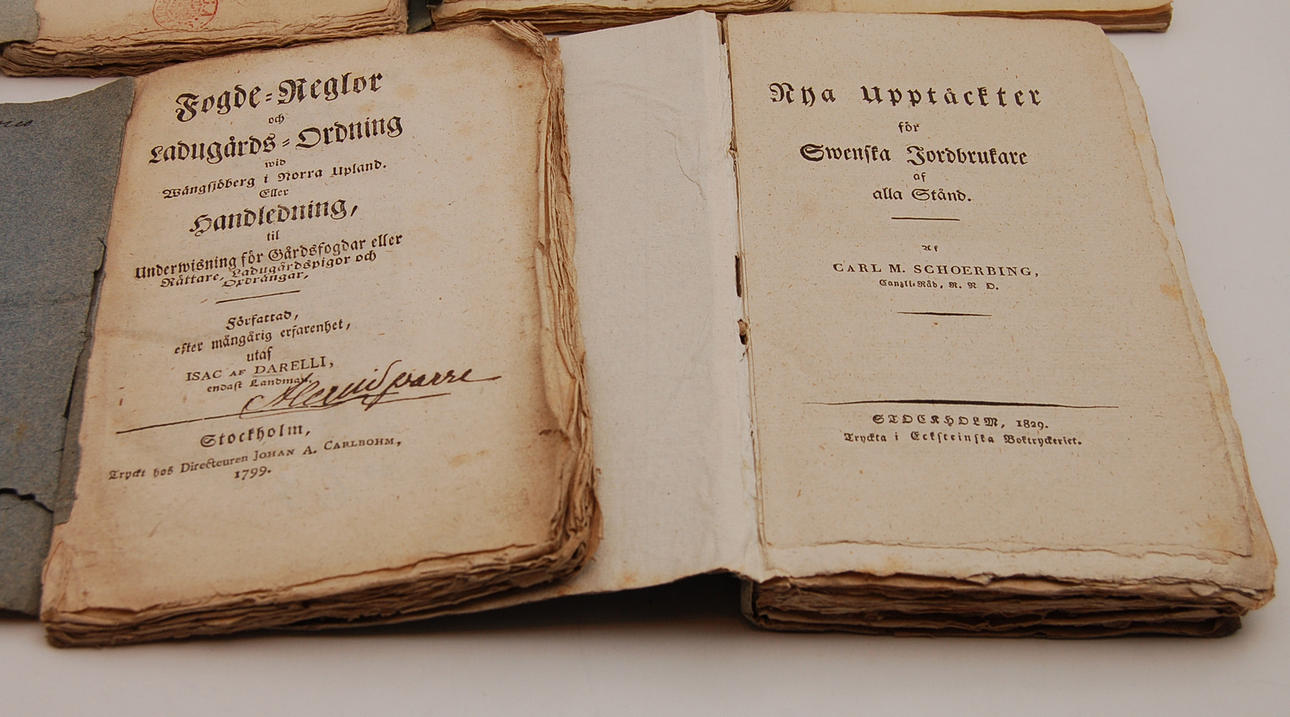 Fogde-Reglor
och
Ladugårds-Ordning
wid
Wängsjöberg i Norra Upland.
Eller
Handledning,
til
Underwisning för Gårdsfogdar eller
Rättare, Ladugårdspigor och
Oxdrängar,
Författad,
efter mångårig erfarenhet,
utaf
ISAC AF DARELLI,
endast Landtman.
Stockholm,
Tryckt hos Directeuren JOHAN A. CARLBOHM,
1799.
Nya Upptäckter
för
Swenska Jordbrukare
af
alla Stånd.
Af
CARL M. SCHOERBING,
Canzli-Råd, R. N. O.
STOCKHOLM, 1829.
Tryckta i Ecksteinska Boktryckeriet.